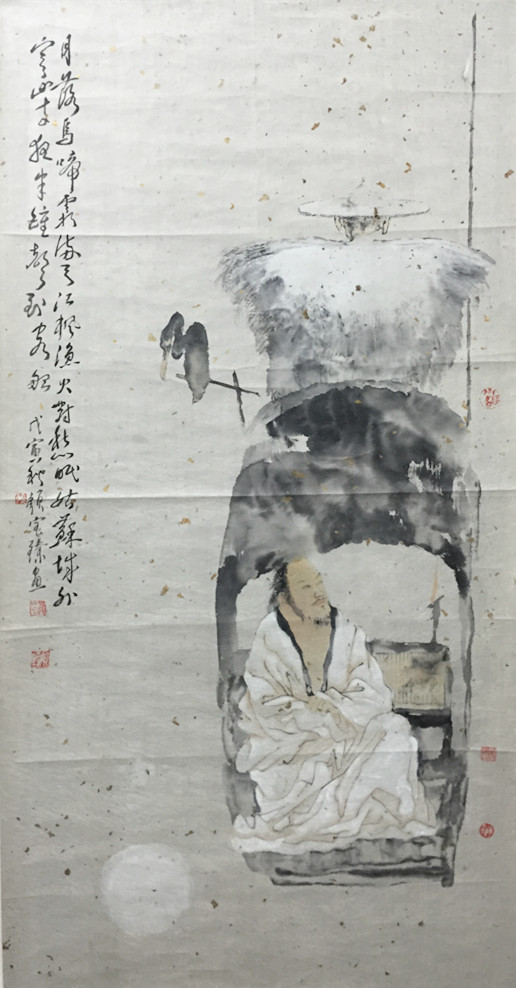 月落烏啼霜滿天江楓漁火對愁眠姑蘇城外
寒山寺夜半鐘聲到客船 戊寅秋顏宝臻畫